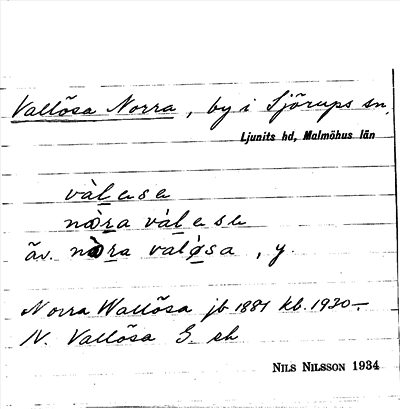 Vallösa Norra, by i Sjörups sn,
Ljunits hd, Malmöhus län
vàlese
nòra vàlese
äv. nòra valø̀sa, y.
Norra Wallösa jb 1881 kb. 1930 –
N. Vallösa G. ek
NILS NILSSON 1934